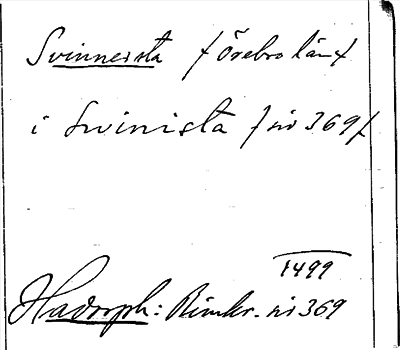 Svinnersta /Örebro län/
i Swinista / nr 369/
1499
Hadorph: Rimkr. nr 369